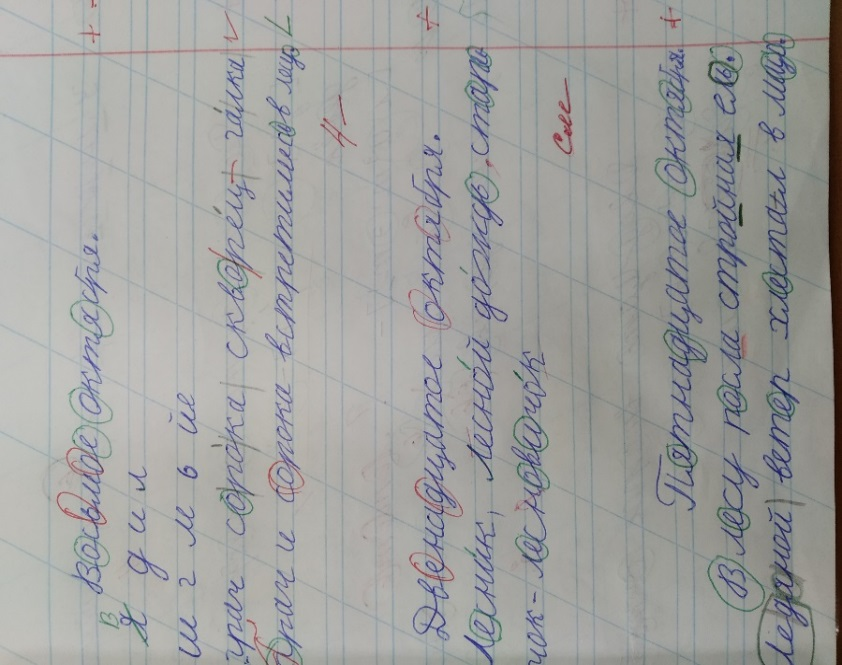 Восьмое октября.
В
я д и л
ш г м ь й е
грач сорока скворец галка
Грач и сорока встретились в лесу
4-
Двенадцатое октября.
Лесник, лесной дождик, стари
чок-лесовичок
Пятнадцатое октября.
В лесу росла стройная ель.
Ледяной ветер хлестал в лица